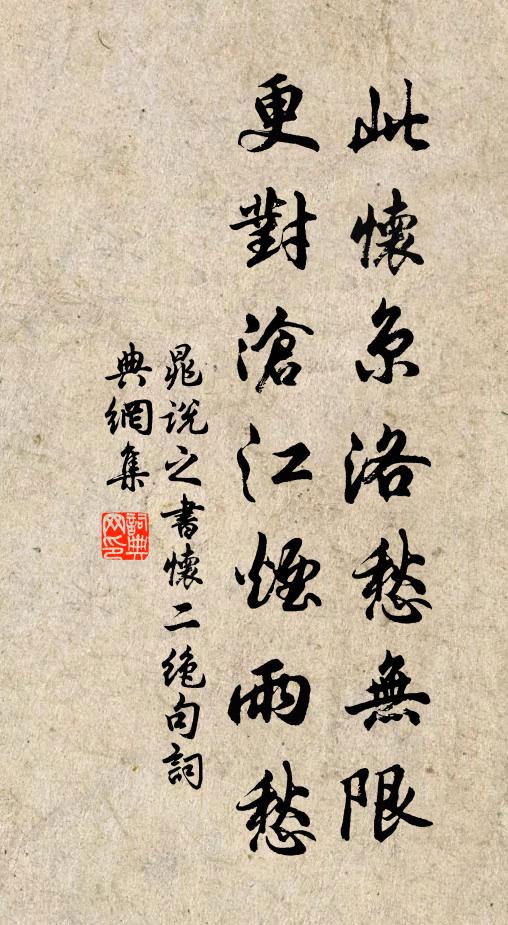 此懷京洛愁無限
更對滄江煙雨愁
晁說之書懷二絕句詞
典網集
詞典網印